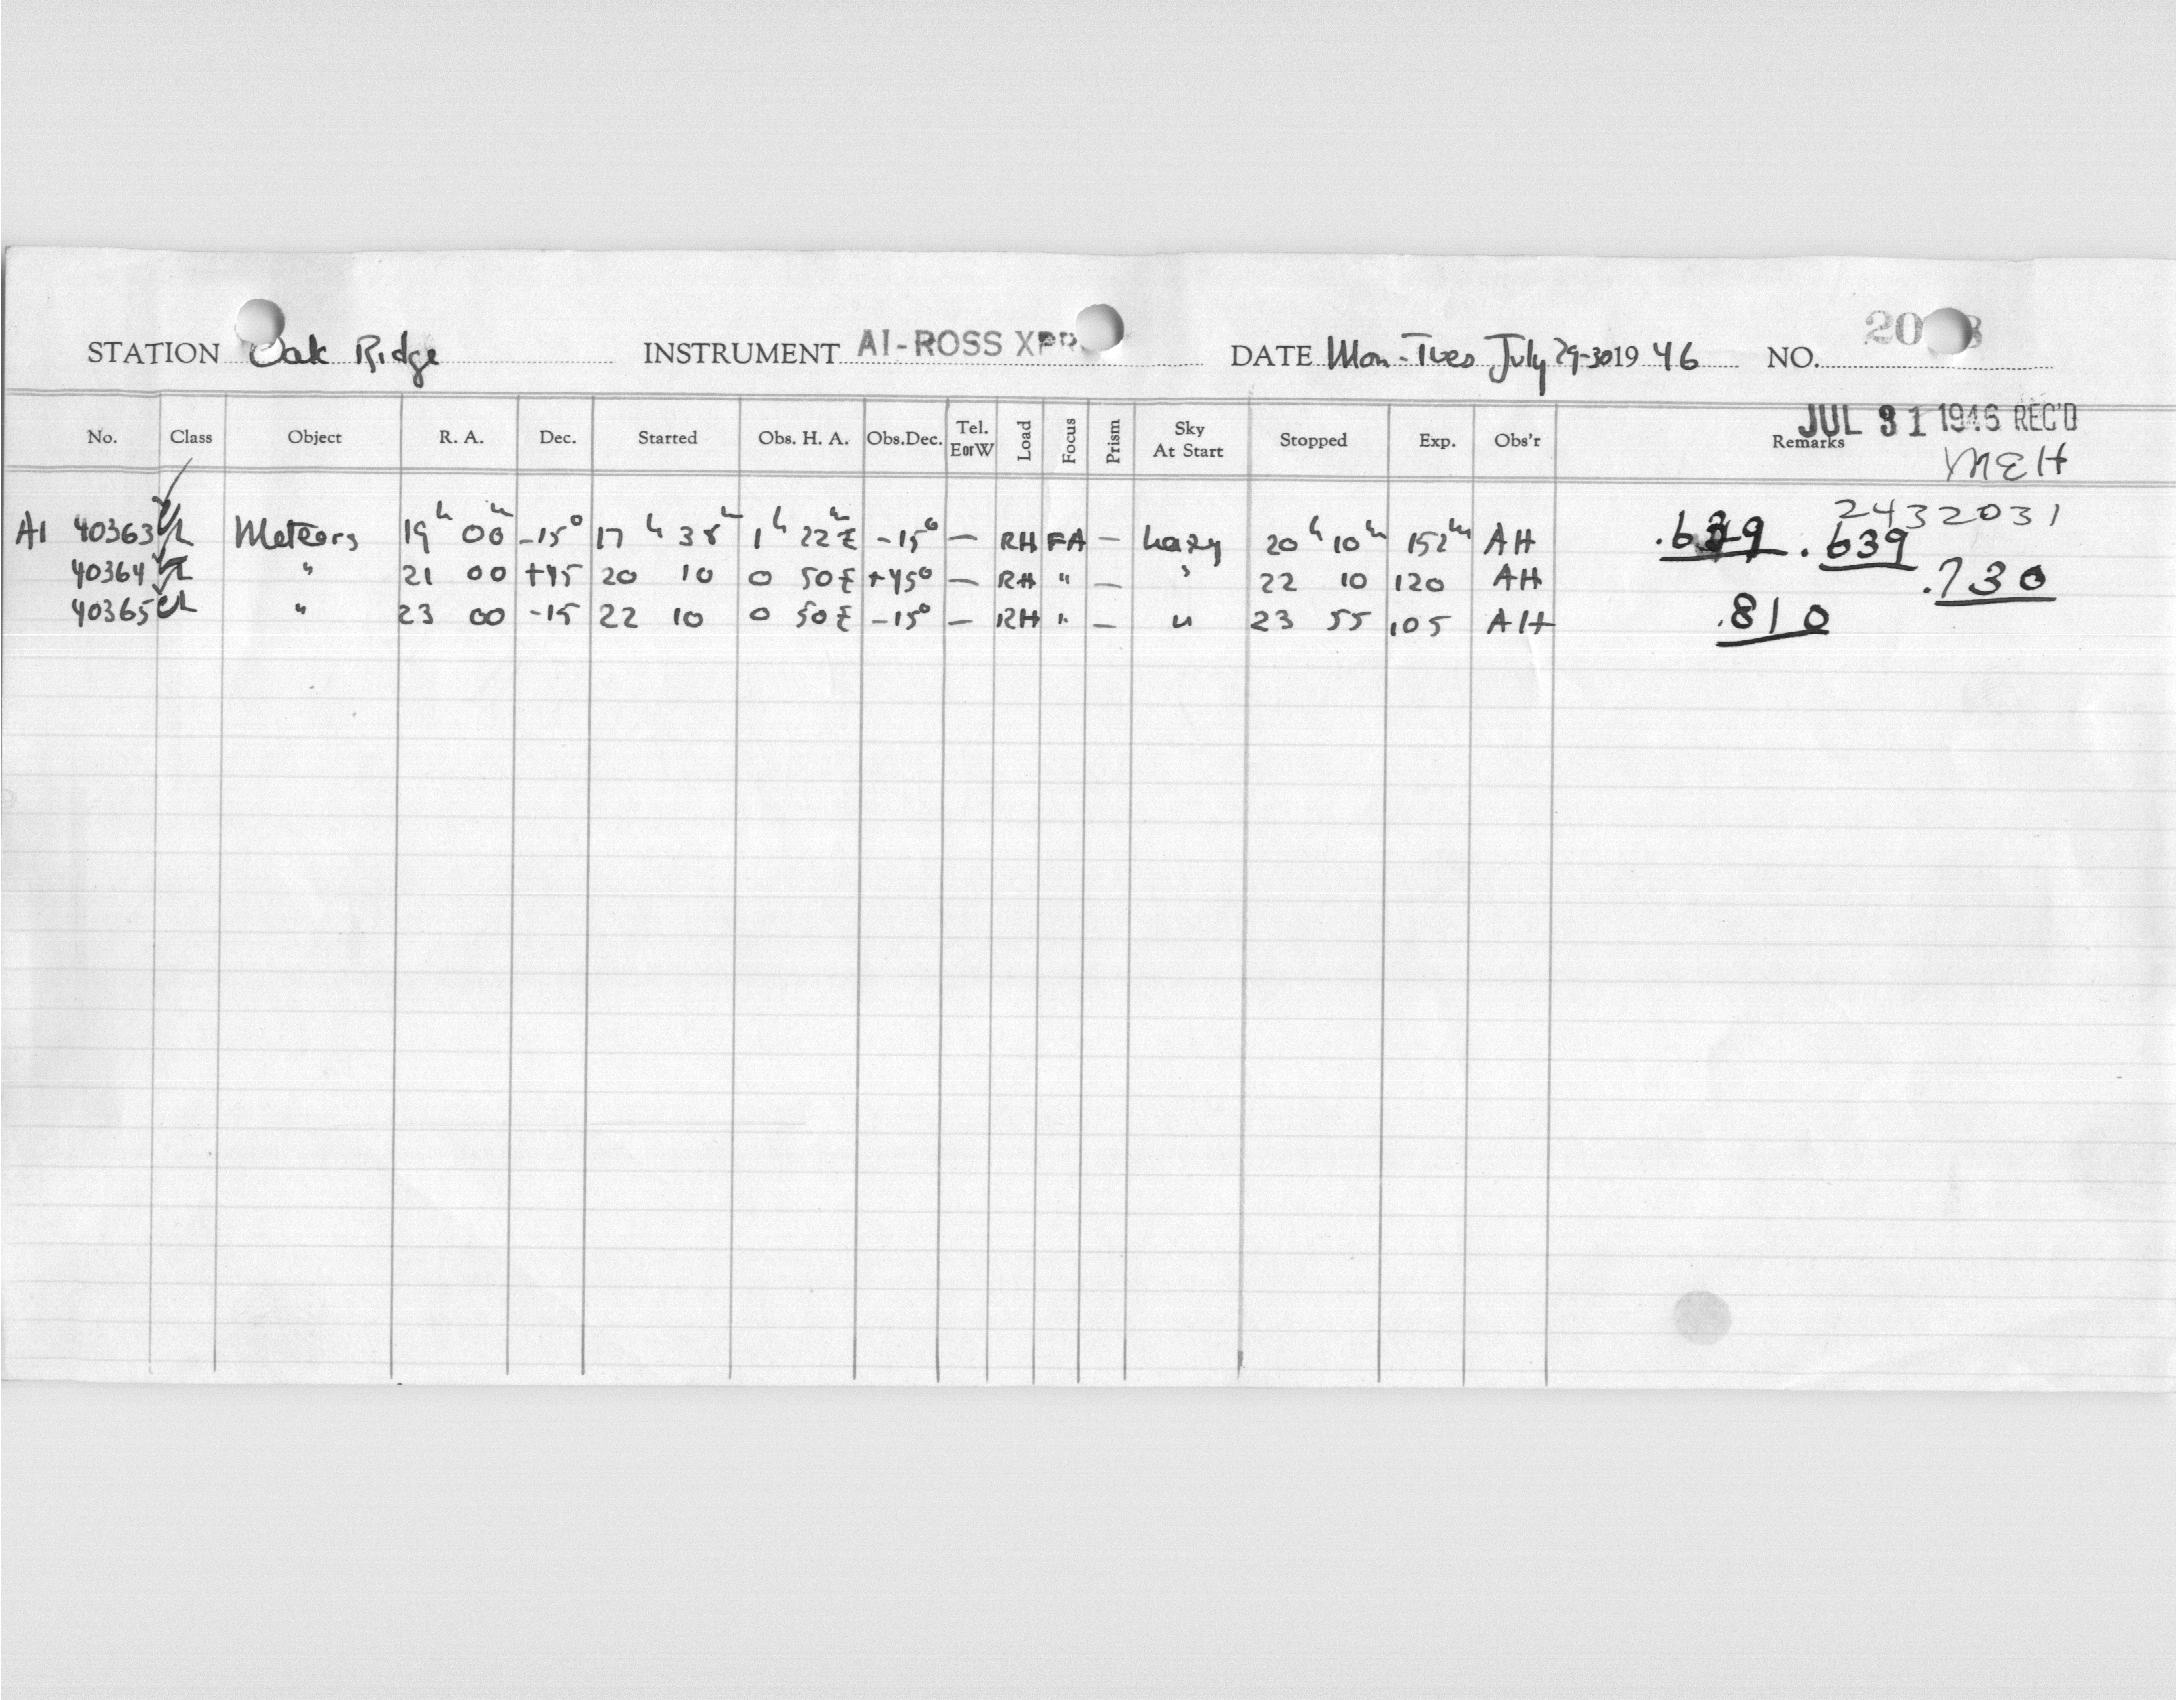 STATION Oak Ridge INSTRUMENT AI-ROSS XPR DATE Mon-Tues July 29-30 19 46 NO. 20 3
JUL 31 1946 REC'D
No. Class Object R. A. Dec. Started Obs. H. A. Obs.Dec. Tel. EorW Load Focus Prism Sky At Start Stopped Exp. Obs'r Remarks
MEH
2432031
AI 40363 Meteors 19h 00m -15° 17h 38m 1h 22m E -15° — RH FA — hazy 20h 10m 152m AH .639 .639
40364 " 21 00 +45 20 10 0 50E +45° — RH " — " 22 10 120 AH .730
40365 " 23 00 -15 22 10 0 50E -15° — RH " — " 23 55 105 AH .810